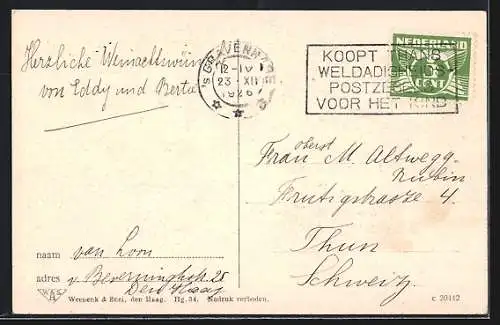 Herzliche Weinachtswün
von Eddy und Berta
'S GRAVENHAGE
12-IV
23 XII
1926
KOOPT THANS
WELDADIGHEIDS
POSTZEGELS
VOOR HET KIND
NEDERLAND
CENT
oberst
Frau M. Altwegg-
Rubin
Frutigstrasse 4.
Thun
Schweiz.
naam van Loon
adres v. Beverningkstr 25
Den Haag
Weenenk & Snel, den Haag. Hg. 34. Nadruk verboden.
c 20112